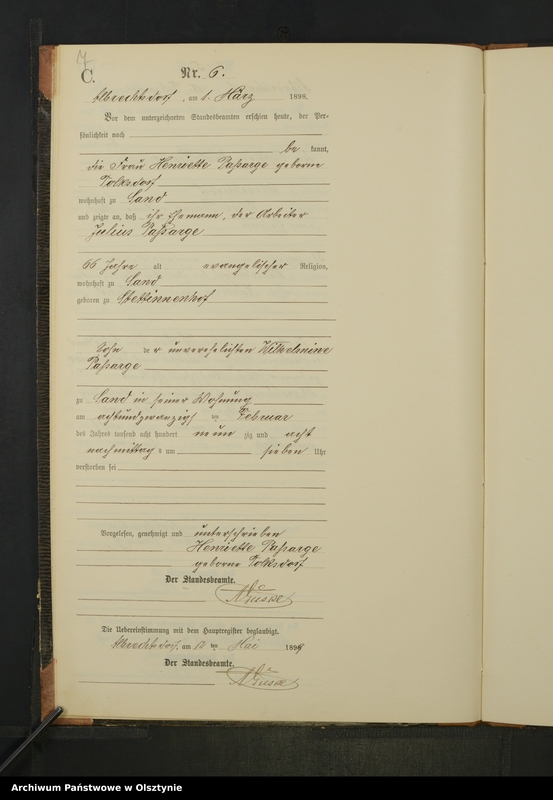 7
C.
Nr. 6.
Albrechtsdorf, am 1. März 1898.
Vor dem unterzeichneten Standesbeamten erschien heute, der Per-
sönlichkeit nach
be kannt,
die Frau Henriette Passarge geborne
Tolksdorf
wohnhaft zu Sand
und zeigte an, daß ihr Ehemann, der Arbeiter
Julius Passarge
66 Jahre alt evangelischer Religion,
wohnhaft zu Sand
geboren zu Stettinnenhof
Sohn der unverehelichten Wilhelmine
Passarge
zu Sand in seiner Wohnung
am achtundzwanzigsten Februar
des Jahres tausend acht hundert neun zig und acht
nachmittags um sieben Uhr
verstorben sei
Vorgelesen, genehmigt und unterschrieben
Henriette Passarge
geborne Tolksdorf
Der Standesbeamte.
Die Uebereinstimmung mit dem Hauptregister beglaubigt.
Albrechtsdorf, am ten Mai 189
Der Standesbeamte.
Archiwum Państwowe w Olsztynie